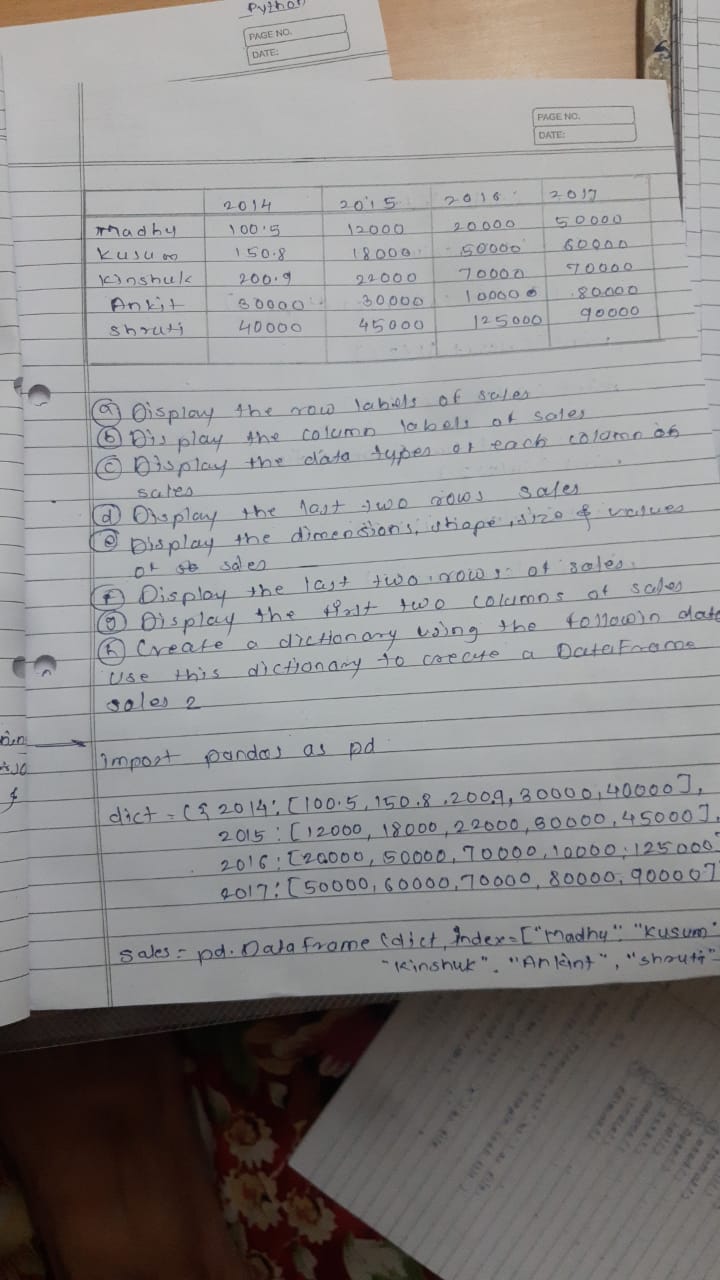 Python
PAGE NO.
DATE:
PAGE NO.
DATE:
2014 2015 2016 2017
Madhy 100.5 12000 20000 50000
Kusum 150.8 18000 50000 60000
Kinshuk 200.9 22000 70000 70000
Ankit 30000 30000 100000 80000
Shruti 40000 45000 125000 90000
(a) Display the row labels of sales
(b) Display the column labels of sales
(c) Display the data types of each column of
sales
(d) Display the last two rows sales
(e) Display the dimensions, shape, size & values
of sales
(f) Display the last two rows of sales.
(g) Display the first two columns of sales
(h) Create a dictionary using the followin data
Use this dictionary to create a DataFrame
sales 2
import pandas as pd
dict = ({ 2014: [100.5, 150.8, 200.9, 30000, 40000],
2015 : [12000, 18000, 22000, 30000, 45000],
2016 : [20000, 50000, 70000, 10000, 125000
2017: [50000, 60000, 70000, 80000, 90000]
sales = pd. Data frame (dict, Index = ["Madhy" "Kusum"
"Kinshuk", "Ankint", "shruti"